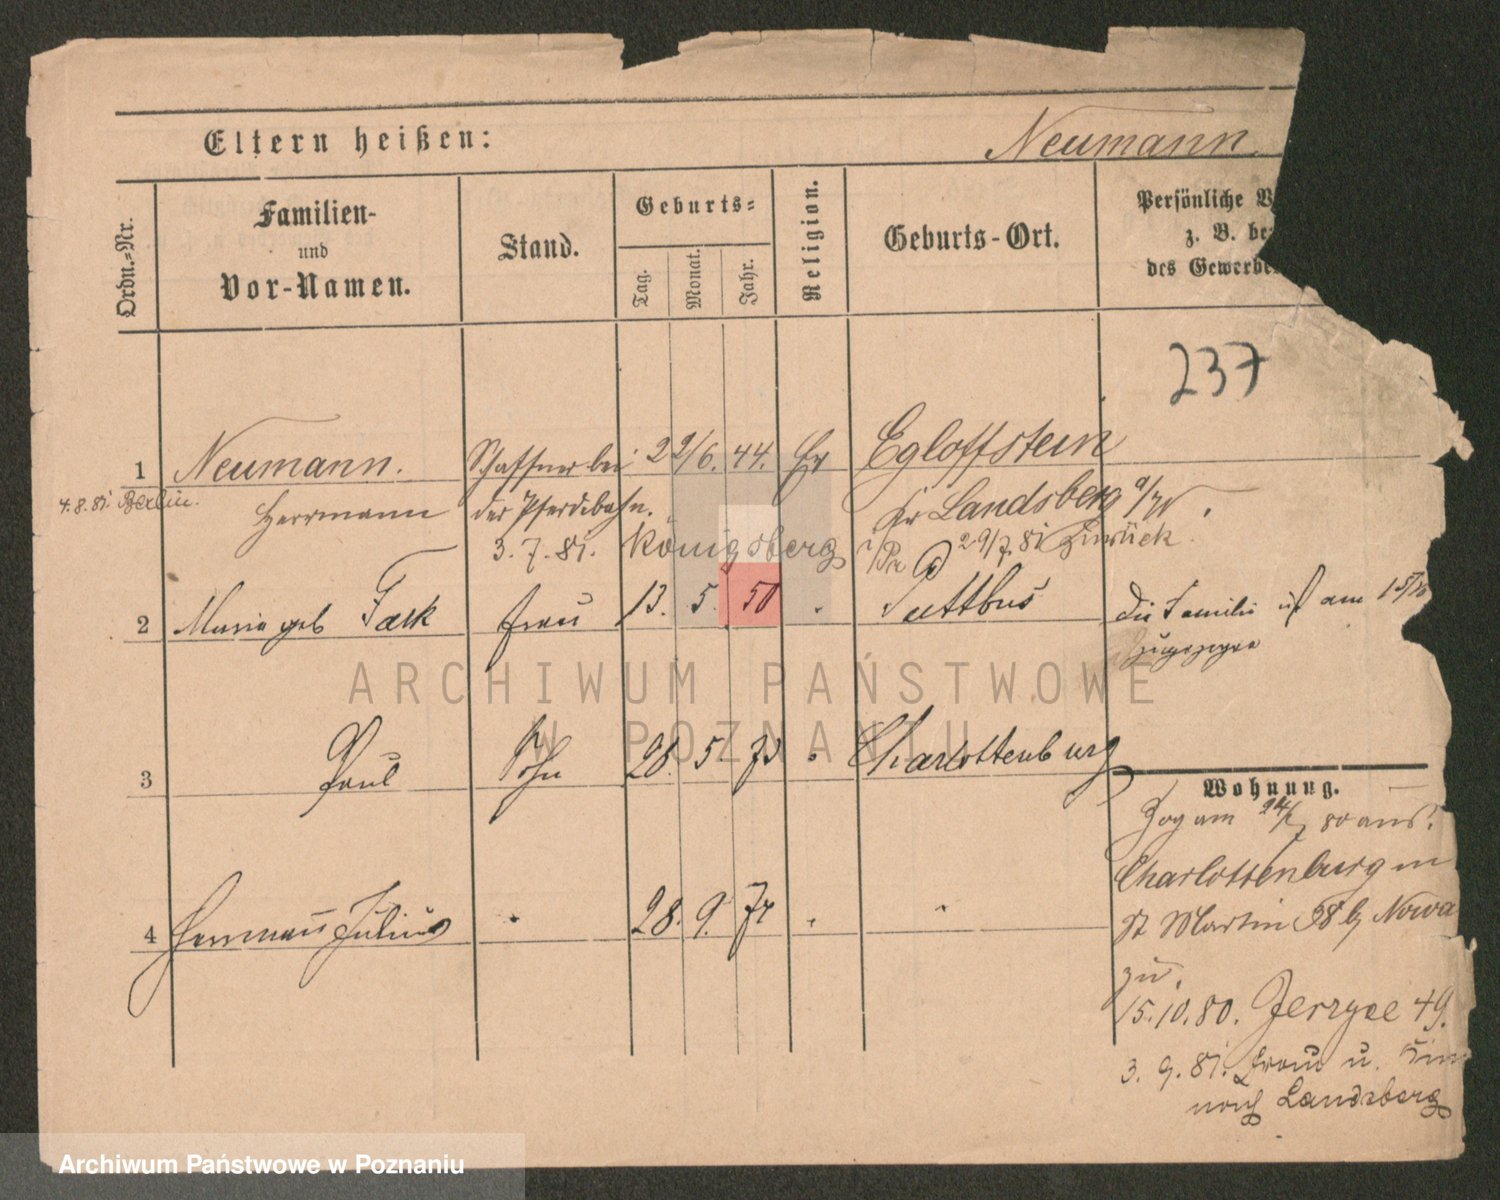 Eltern heißen:
Neumann.
Ordn.-Nr.
Familien-
und
Vor-Namen.
Stand.
Geburts-
Tag.
Monat.
Jahr.
Religion.
Geburts-Ort.
Persönliche V
z. B. be
des Gewerbe
237
1 Neumann. Schaffner bei 22/6. 44. Ev Egloffstein
4.8.81. Berlin. Herrmann der Pferdebahn. Kr Landsberg a/W.
3.7.81. Königsberg i/Pr 29/7 81 zurück.
2 Marie geb Frau 13. 5. 50 " Puttbus Die Familie ist am
zugezogen
3 Paul Sohn 28. 5 73 " Charlottenburg
4 Hermann Julius " 28. 9. " "
Wohnung.
Zog am 80 aus.
Charlottenburg in
St Martin 58 b, Nowa
zu.
15.10.80. Jerzyce 49.
3.9.81. Frau u. Kin
nach Landsberg
ARCHIWUM PAŃSTWOWE
W POZNANIU
Archiwum Państwowe w Poznaniu